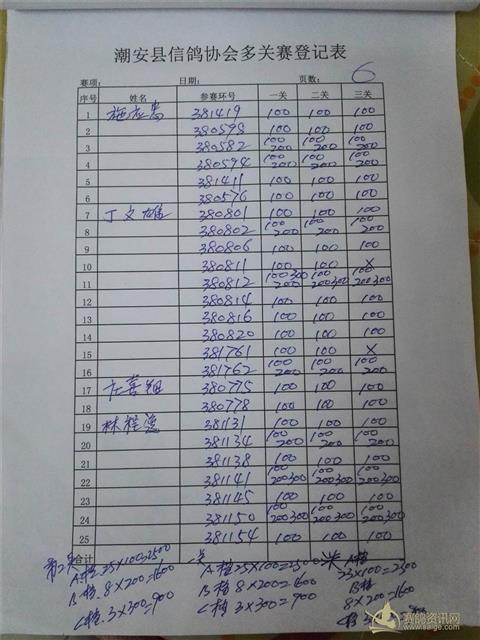 潮安县信鸽协会多关赛登记表
赛项： 日期： 页数： 6
序号 姓名 参赛环号 一关 二关 三关
1 施应嵩 381419 100 100 100
2 380595 100 100 100
3 380582 100 200 100 200 100 200
4 380594 100 200 100 200 100 200
5 381411 100 100 100
6 380576 100 100 100
7 丁文雄 380801 100 100 100
8 380802 100 200 100 200 100 200
9 380806 100 100 100
10 380811 100 100 X
11 380812 100 200 300 100 200 300 100 200 300
12 380814 100 100 100
13 380816 100 100 100
14 380820 100 100 100
15 381761 100 100 X
16 381762 100 200 100 200 100 200
17 380775 100 100 100
18 380778 100 100 100
19 381131 100 100 100
20 381134 100 200 100 200 100 200
21 381138 100 100 100
22 381141 100 200 300 100 200 300 100 200 300
23 381145 100 100 100
24 381150 100 200 300 100 200 300 100 200 300
25 381154 100 100 100
合计
A档 25×100=2500 A档 25×100=2500 A档
B档 8×200=1600 B档 8×200=1600 23×100=2300
C档 3×300=900 C档 3×300=900 B档
8×200=1600
赛鸽资讯网
www.saige.com